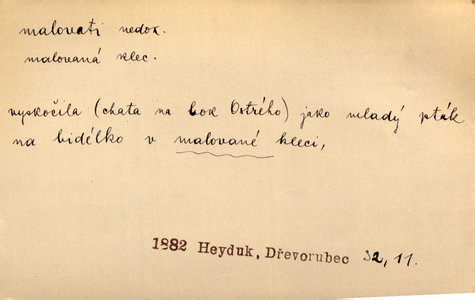 malovati nedok.
malovaná klec.
vyskočila (chata na bok Ostrého) jako mladý pták
na bidélko v malované kleci,
1882 Heyduk, Dřevorubec 32, 11.